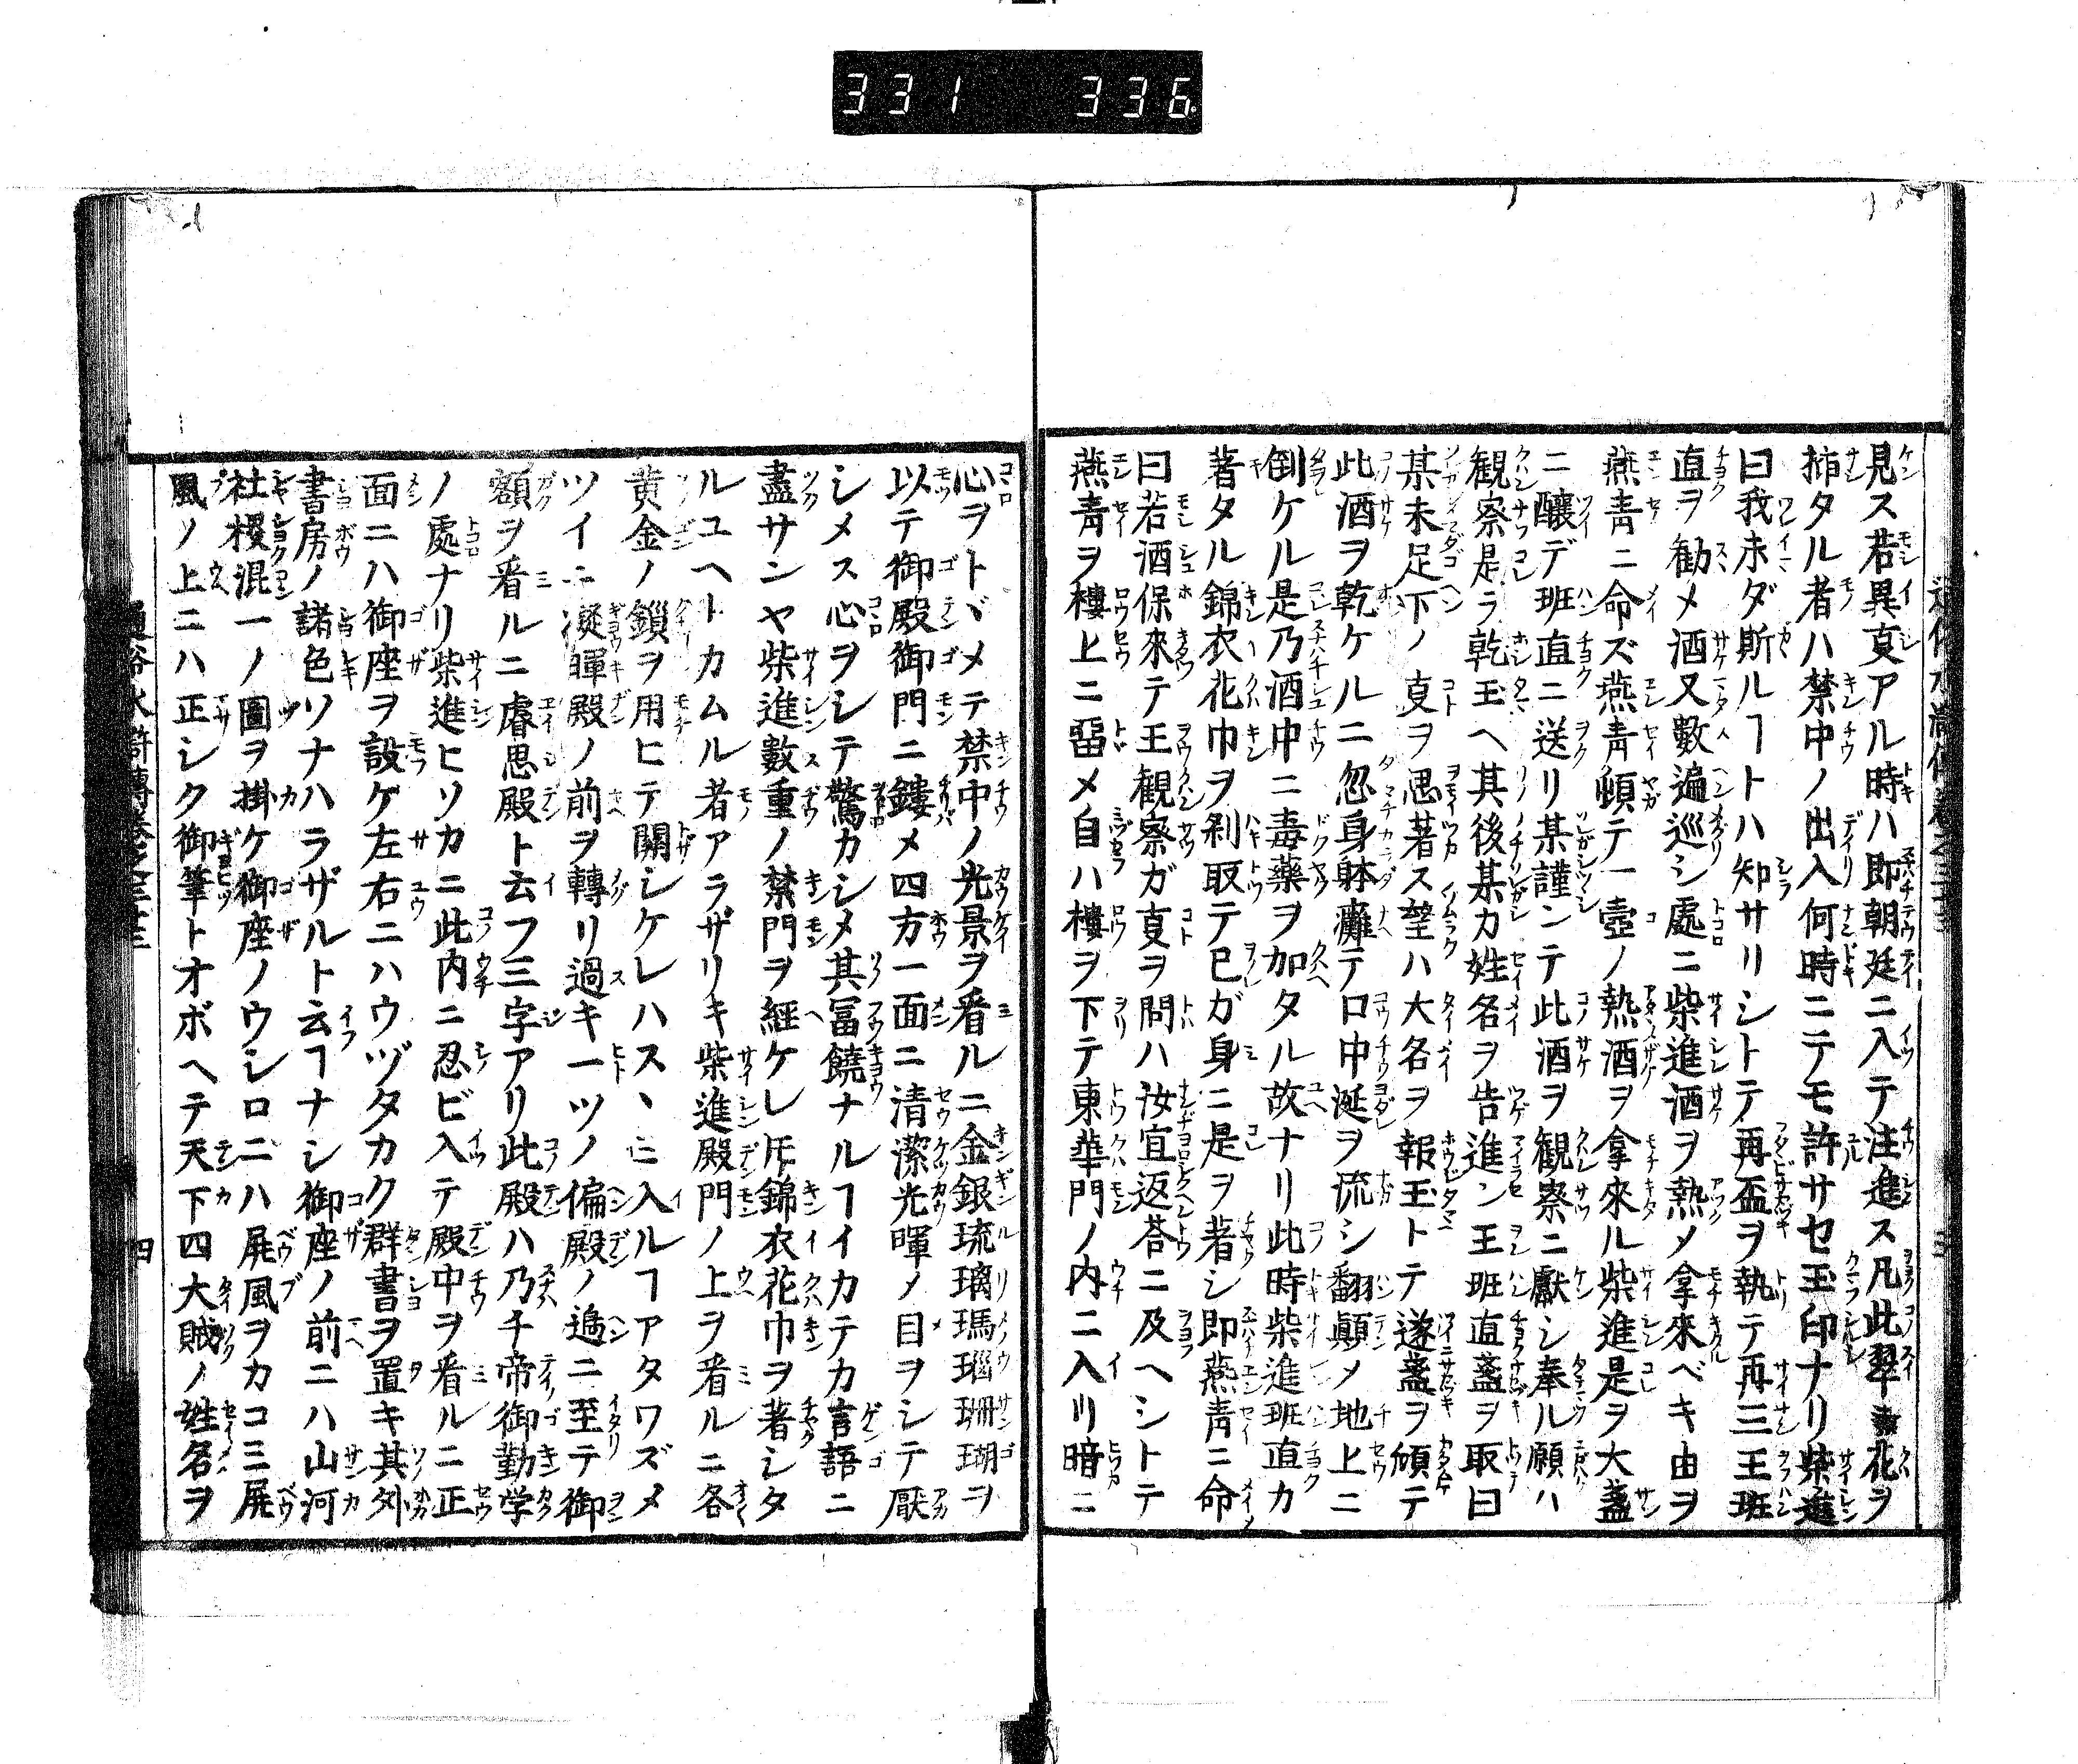 331 336
見ス若異叓アル時ハ即朝廷ニ入テ注進ス凡此翠花ヲ
揷タル者ハ禁中ノ出入何時ニテモ許サセ玉印ナリ柴進
曰我未ダ斯ルヿトハ知サリシトテ再盃ヲ執テ再三王班
直ヲ勧メ酒又數遍巡シ處ニ柴進酒ヲ熱メ拿來ベキ由ヲ
燕青ニ命ズ燕青頓テ一壺ノ熱酒ヲ拿來ル柴進是ヲ大盞
ニ釀デ班直ニ送リ某謹ンテ此酒ヲ観察ニ獻シ奉ル願ハ
観察是ラ乾玉ヘ其後某カ姓名ヲ告進ン王班直盞ヲ取曰
某未足下ノ叓ヲ思著ス望ハ大名ヲ報玉トテ遂盞ヲ傾テ
此酒ヲ乾ケルニ忽身躰癱テ口中涎ヲ流シ翻顛メ地上ニ
倒ケル是乃酒中ニ毒藥ヲ加タル故ナリ此時柴進班直カ
著タル錦衣花巾ヲ剝取テ已ガ身ニ是ヲ著シ即燕青ニ命
曰若酒保來テ王観察ガ叓ヲ問ハ汝宜返荅ニ及ヘシトテ
燕青ヲ樓上ニ畱メ自ハ樓ヲ下テ東華門ノ内ニ入リ暗ニ
心ヲトバメテ禁中ノ光景ヲ看ルニ金銀琉璃瑪瑙珊瑚ヲ
以テ御殿御門ニ鏤メ四方一面ニ清潔光暉ノ目ヲシテ厭
シメス心ヲシテ驚カシメ其冨饒ナルヿイカテカ言語ニ
盡サンヤ柴進數重ノ禁門ヲ經ケレ𪜈錦衣花巾ヲ著シタ
ルユヘトカムル者アラザリキ柴進殿門ノ上ヲ看ルニ各
黄金ノ鎖ヲ用ヒテ關シケレハスヽミ入ルヿアタワズメ
ツイニ凝暉殿ノ前ヲ轉リ過キ一ツノ偏殿ノ邉ニ至テ御
額ヲ看ルニ睿思殿ト云フ三字アリ此殿ハ乃チ帝御勤学
ノ處ナリ柴進ヒソカニ此内ニ忍ビ入テ殿中ヲ看ルニ正
面ニハ御座ヲ設ケ左右ニハウヅタカク群書ヲ置キ其外
書房ノ諸色ソナハラザルト云ヿナシ御座ノ前ニハ山河
社稷混一ノ圖ヲ掛ケ御座ノウシロニハ屏風ヲカコミ屏
風ノ上ニハ正シク御筆トオボヘテ天下四大賊ノ姓名ヲ
四